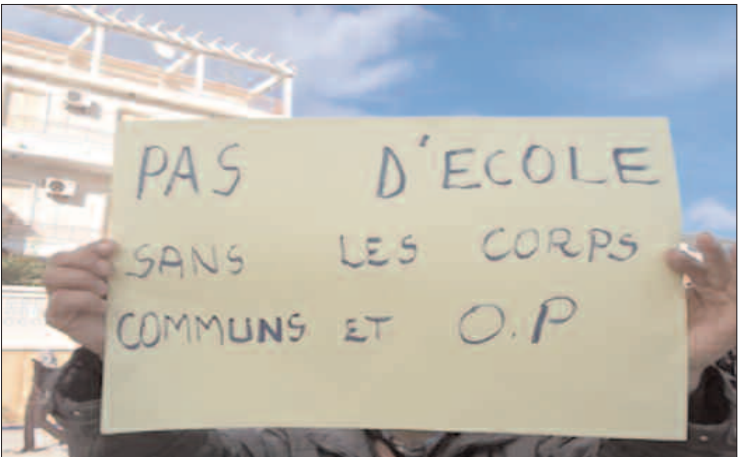 PAS D'ECOLE
SANS LES CORPS
COMMUNS ET O.P